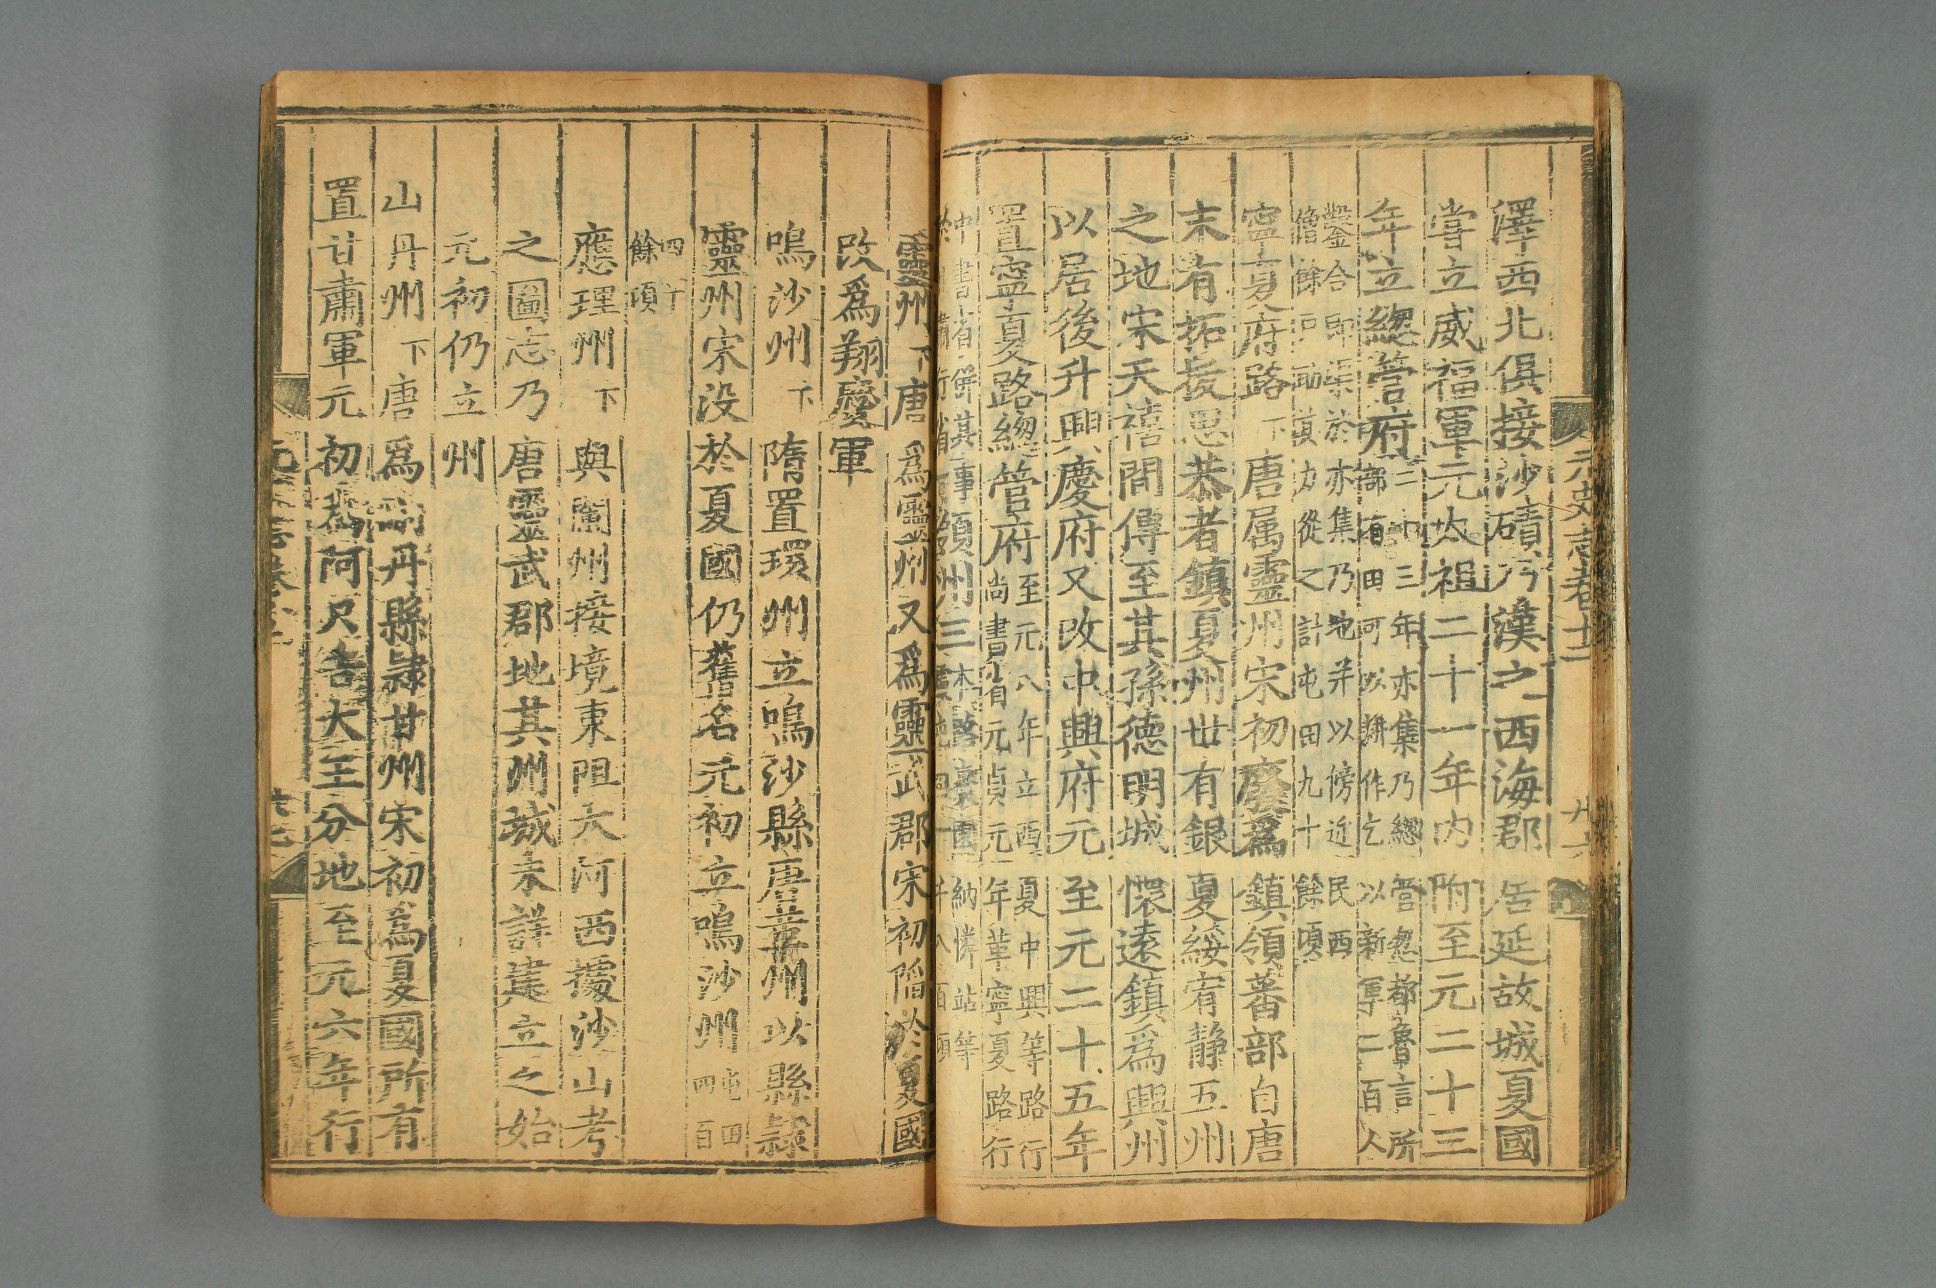 元史志卷十二
澤西北俱接沙磧乃漢之西海郡居延故城夏國
嘗立威福軍元太祖二十一年內附至元二十三
年立緫管府二十三年亦集乃緫管忽都魯言所
部有田可以耕作乞以新軍二百人
鑿合即渠於亦集乃地并以傍近民西
僧餘戶助其力從之計屯田九十餘頃
寧夏府路下唐屬靈州宋初廢爲鎮領蕃部自唐
末有拓拔思恭者鎮夏州世有銀夏綏宥静五州
之地宋天禧間傳至其孫德明城懷遠鎮爲興州
以居後升興慶府又改中興府元至元二十五年
置寧夏路緫管府至元八年立西夏中興等路行
尚書省元貞元年革寧夏路行
中書省併其事
領州三本路
納憐站等
靈州下唐爲靈州又爲靈武郡宋初陷於夏國
改爲翔慶軍
鳴沙州下隋置環州立鳴沙縣唐革州以縣隸
靈州宋没於夏國仍舊名元初立鳴沙州屯田
四百
四十
餘頃
應理州下與蘭州接境東阻大河西據沙山考
之圖志乃唐靈武郡地其州城未詳建立之始
元初仍立州
山丹州下唐爲刪丹縣隸甘州宋初爲夏國所有
置甘肅軍元初爲阿只吉大王分地至元六年行